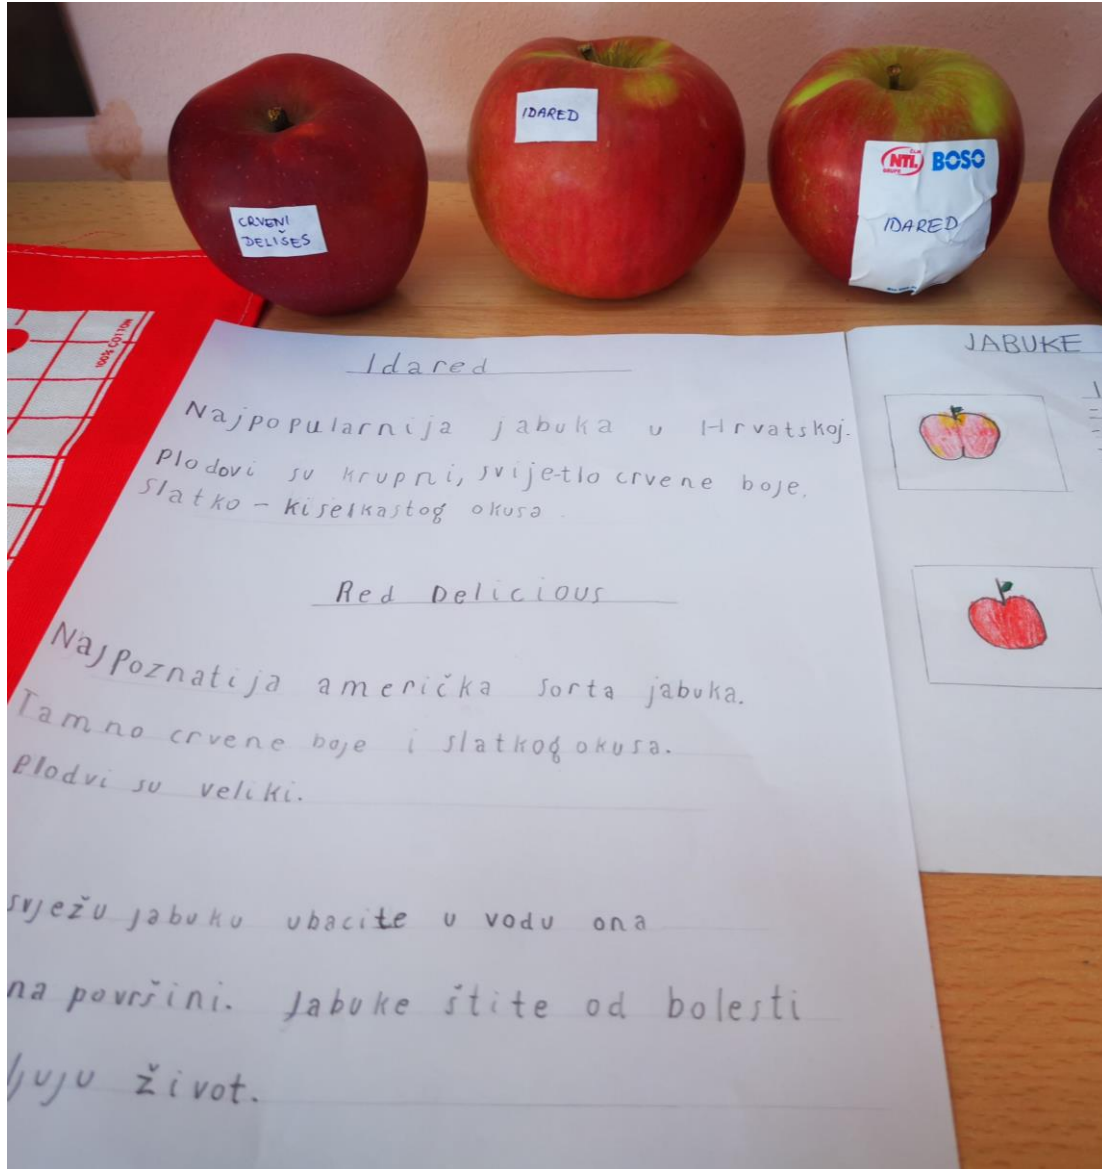 CRVENI
DELIŠES
IDARED
NTL
BOSO
IDARED
100% COTTON
Idared
Najpopularnija jabuka u Hrvatskoj.
Plodovi su krupni, svijetlo crvene boje.
slatko - kiselkastog okusa
Red Delicious
Najpoznatija američka sorta jabuka.
Tamno crvene boje i slatkog okusa.
Plodvi su veliki.
svježu jabuku ubacite u vodu ona
na površini. Jabuke štite od bolesti
ljuju život.
JABUKE